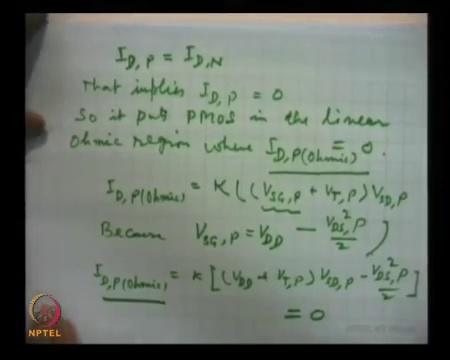 I_D,P = I_D,N
That implies I_D,P = 0
So it puts PMOS in the linear
Ohmic region where I_D,P(Ohmic) = 0.
I_D,P(Ohmic) = K((V_SG,P + V_T,P) V_SD,P
Because V_SG,P = V_DD - V_DS²,P/2)
I_D,P(Ohmic) = K[(V_DD + V_T,P) V_SD,P - V_DS²,P/2]
= 0
NPTEL